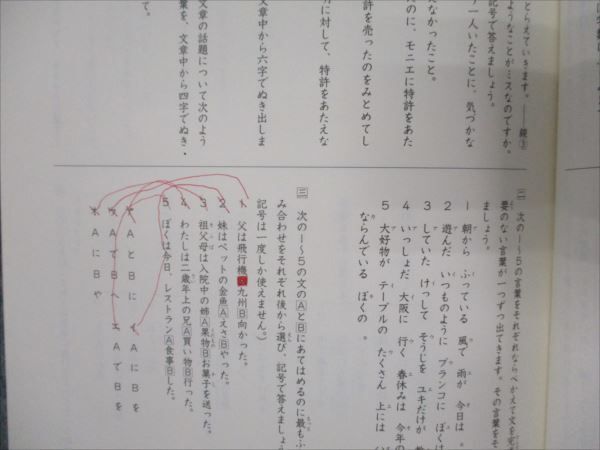 とらえていきます。――鏡③
ようなことがミスなのですか。
記号で答えましょう。
一人いたことに、気づかな
なかったこと。
のに、モニエに特許をあた
許を売ったのをみとめてし
に対して、特許をあたえな
文章中から六字でぬき出しま
文章の話題について次のよう
葉を、文章中から四字でぬき・
て。
二 次の1〜5の言葉をそれぞれならべかえて文を完
要のない言葉が一つずつ出てきます。その言葉をそ
ましょう。
1 朝から ふっている 風で 雨が 今日は 。
2 遊んだ いつものように ブランコに ぼくは
3 していた けっして そうじを ユキだけが
4 いっしょだ 大阪に 行く 春休みは 今年の
5 大好物が テーブルの たくさん 上には
ならんでいる ぼくの 。
三 次の1〜5の文のAとBにあてはめるのに最もふ
み合わせをそれぞれ後から選び、記号で答えましょう
記号は一度しか使えません。)
1 父は飛行機A九州B向かった。
2 妹はペットの金魚AえさBやった。
3 祖父母は入院中の姉A果物Bお菓子を送った。
4 わたしは二歳年上の兄A買い物B行った。
5 ぼくは今日、レストランA食事Bした。
ア AとBに イ AにBを
ウ AでBへ エ AでBを
オ AにBや